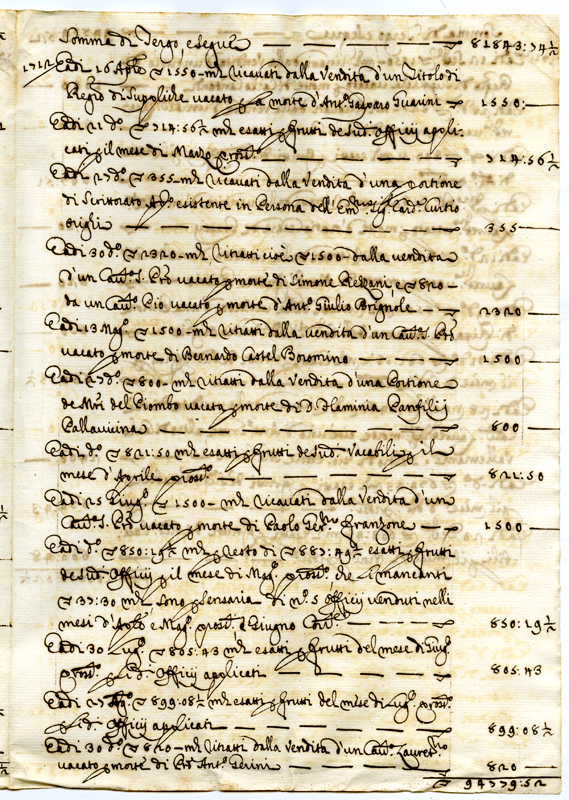 Somma di Tergo, e segue — 81843:74½
1712 E adi 16 Aple ∇ 1550 - mta ricavati dalla Vendita d'un Titolo di
Regro di Suppliche vacato p la morte d'Ant. Gasparo Guarini — 1550:—
E adi 21 do. ∇ 714:56½ mta esatti p frutti de Sud. Officij appli:
cati p il mese di Marzo pross.o — 714:56½
E adi 27 do. ∇ 355 mta ricavati dalla Vendita d'una portione
di Scrittorato Apo. esistente in Persona dell'Emo. Sig. Card. Curtio
Orighi — 355 —
E adi 30 do. ∇ 2320 - mta ritratti cioè ∇ 1500 - dalla vendita
d'un Cavto. S. Pro vacato p morte di Simone e ∇ 820 -
da un Cavto. Pio vacato p morte d'Anto. Giulio Brignole — 2320 —
E adi 13 Mago. ∇ 1500 - mta ritratti dalla vendita d'un Cavto. S. Pro
vacato p morte di Bernardo Castel Boromino — 1500
E adi 27 do. ∇ 800 - mta ritratti dalla Vendita d'una Portione
de Mri del Piombo vacata p morte di D. Flaminia Panfilij
Pallavicina — 800 —
E adi do. ∇ 821:50 mta esatti p frutti de Sud. Vacabili p il
mese d'Aprile pross.o — 821:50
E adi 25 Giugo. ∇ 1500 - mta ricavati dalla Vendita d'un
Cavto. S. Pro vacato p morte di Paolo Gerno. Franzone — 1500 —
E adi do. ∇ 850:19½ mta p resto di ∇ 887:49½ esatti p frutti
de Sud. Officij p il mese di Mago. pross.o, che li mancanti
∇ 37:30 mta sono p Senseria di no. 5 Officij venduti nelli
mesi d'Aple e Mago. pross.i, e Giugno — 850:19½
E adi 30 Lugo. ∇ 805:43 mta esatti p frutti del mese di Giugo.
pross.o p li do. Officij applicati — 805:43
E adi 27 Ago. ∇ 899:08½ mta esatti p frutti del mese di Lugo. pross.o
p li do. Officij applicati — 899:08½
E adi 30 do. ∇ 820 - mta ritratti dalla Vendita d'un Cavto. Lauretno
vacato p morte di Pro Anto. Gerini — 820 —
∇ 94779:52